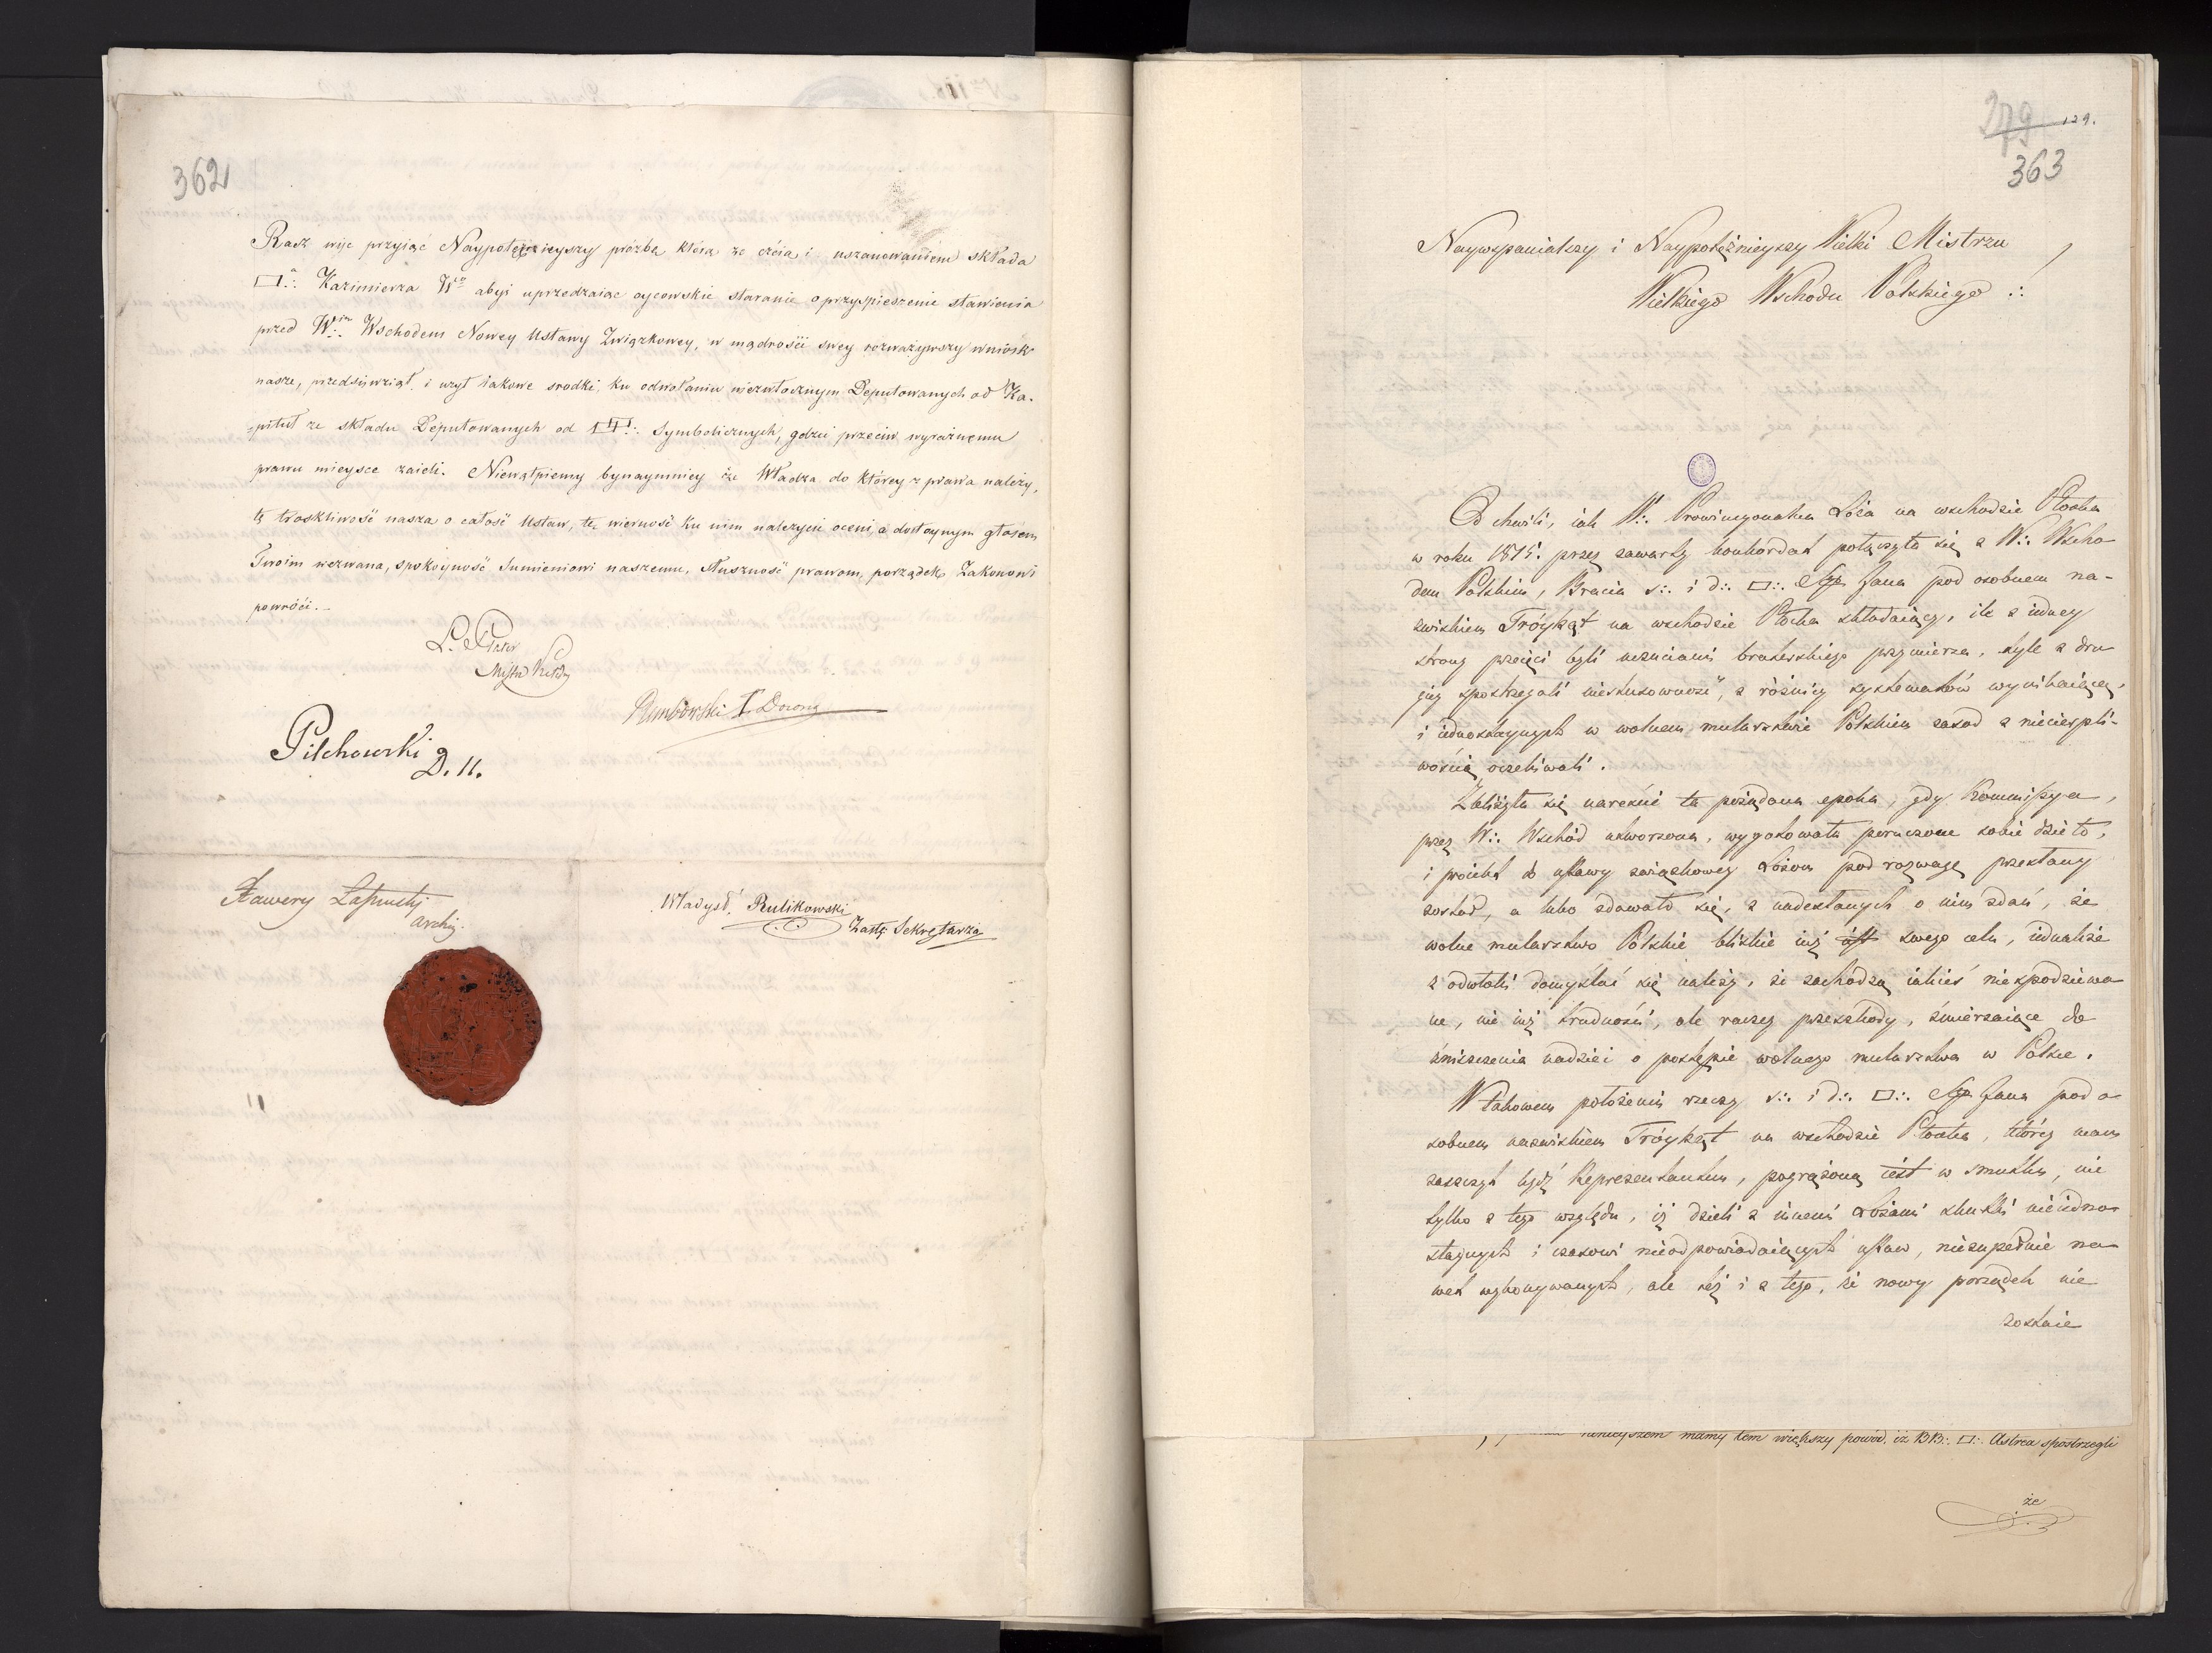 362
Racz więc przyiąć Naypotężnieyszy próźbę którą ze czcią i uszanowaniem składa
▭∴ Kazimierza Wgo abyś uprzedzaiąc oycowskie staranie o przyspieszenie stawienia
przed W∴im Wschodem Nowey Ustawy Związkowey, w mądrości swey rozważywszy wniosk
nasze, przedsięwziął i użył takowe srodki, ku odwołaniu niezwłocznym Deputowanych od Ka-
-pituł ze składu Deputowanych od ▭∴ Symbolicznych, gdzie przeciw wyraźnemu
prawu mieysce zaieli. Niewątpiemy bynaymniey że Władza do którey z prawa należy,
tę troskliwość nasza o całość Ustaw, tę wierność ku nim należycie oceni, a dostoynym głosem
Twoim wezwana, spokoyność Sumieniowi naszemu, Słuszność prawom, porządek Zakonowi
powróci.
L. Plater
Mistrz Katedry
Dembowski I Dozorca
Pilchowski
D. II.
Xawery
archiw.
Władysł. Rulikowski
Zastę: Sekretarza
279 129.
363
Naywspanialszy i Naypotężnieyszy Wielki Mistrzu
Wielkiego Wschodu Polskiego ∴
Od chwili, iak W∴ Prowincyonalna Loża na wschodzie Płocka
w roku 1815. przez zawarty konkordat połączyła się z W∴ Wscho
dem Polskim, Bracia s∴ i d∴ ▭∴ Sgo Jana pod osobnem na-
zwiskiem Tróykąt na wschodzie Płocka składaiący, ile z iedney
strony przeięci byli uczuciami braterskiego przymierza, tyle z dru
giey spostrzegali niestosowność, z różnicy systematów wynikaiącą,
i iednostaynych w wolnem mularstwie Polskiem zasad z niecierpli-
wością oczekiwali.
Zbliżyła się nareście ta pożądana epoka, gdy Kommissya,
przez W∴ Wschód utworzona, wygotowała poruczone sobie dzieło,
i proiekt do ustawy związkowey Lożom pod rozwagę przesłany
został, a lubo zdawało się, z nadesłanych o nim zdań, że
wolne mularstwo Polskie bliskie iuż iest swego celu, iednakże
z odwłoki domyślać się należy, że zachodzą iakieś niespodziewa
ne, nie iuż trudności, ale raczey przeszkody, zmierzaiące do
zniszczenia nadziei o postępie wolnego mularstwa w Polsce.
W takowem położeniu rzeczy s∴ i d∴ ▭∴ Sgo Jana pod o
sobnem nazwiskiem Tróykąt na wschodzie Płocka, którey mam
zaszczyt bydź Reprezentantem, pogrążoną iest w smutku, nie
tylko z tego względu, iż dzieli z innemi Lożami skutki nieiedno
staynych i czasowi nieodpowiadaiących ustaw, niezupełnie na
wet wykonywanych, ale też i z tego, że nowy porządek nie
zostaie
mamy tem większy powód, iż BB∴ ▭∴ Astrea spostrzegli
że